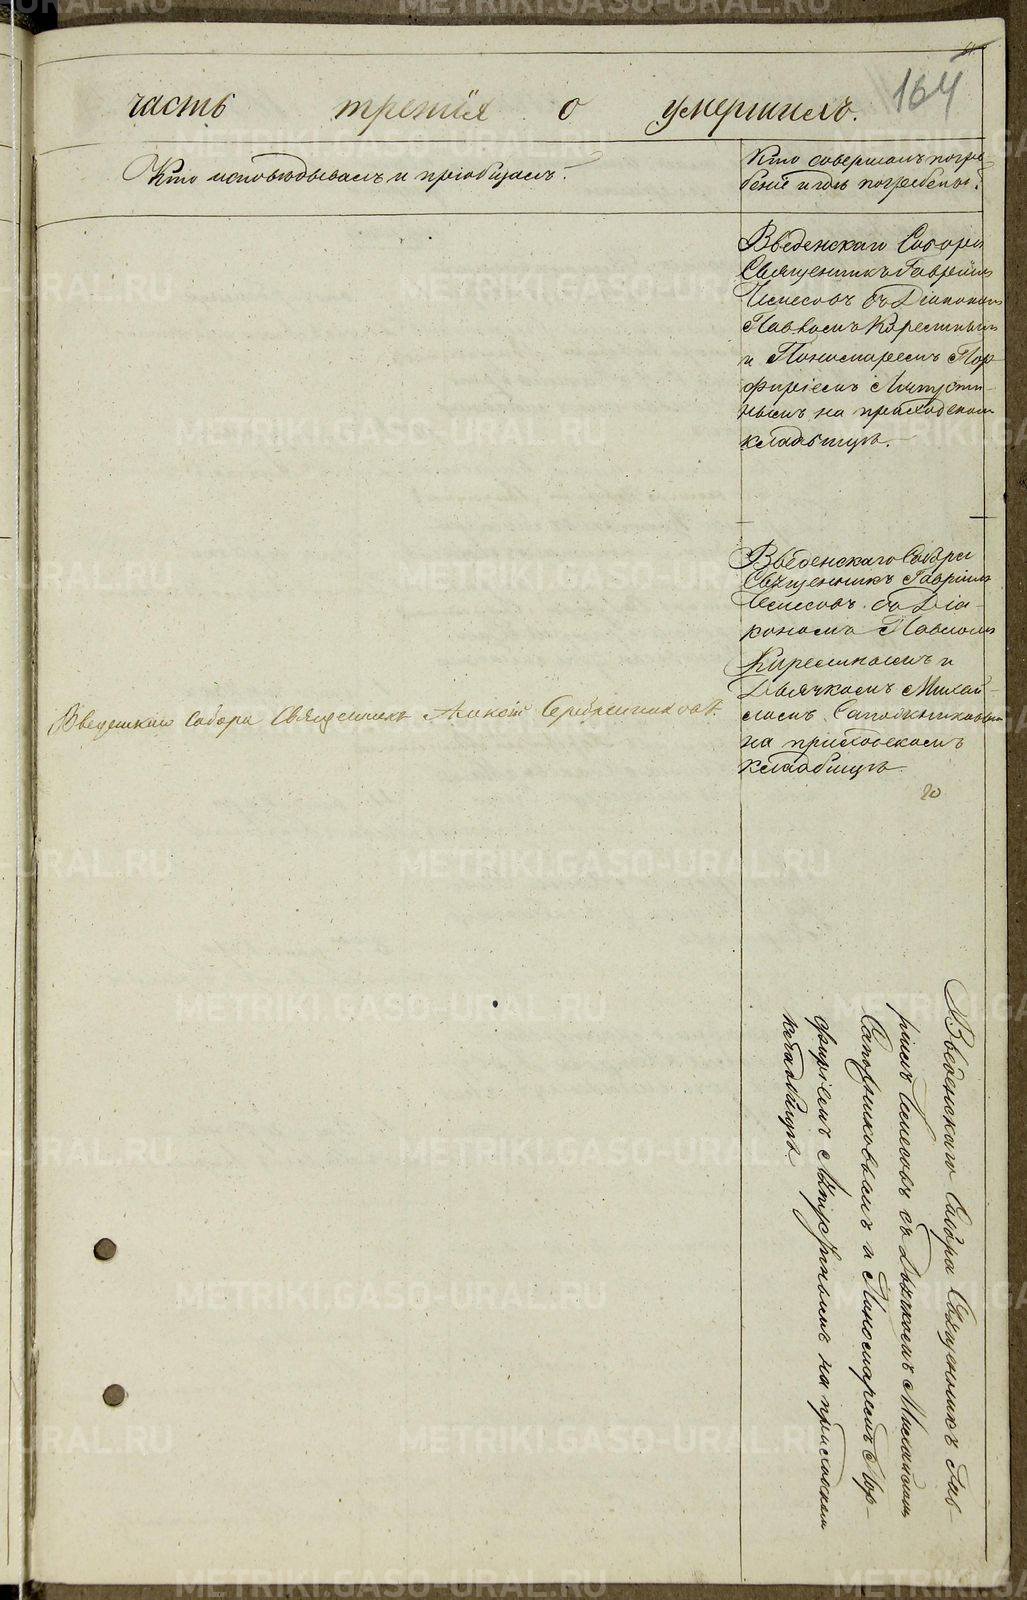 164
часть третія о умершихъ.
Кто исповѣдывалъ и пріобщалъ.
Кто совершалъ погре-
бенiе и гдѣ погребены.
Введенскаго Собора
Священникъ Гавріилъ
съ Діакономъ
Павломъ
и Пономаремъ Пор-
фиріемъ
нымъ на приходскомъ
кладбищѣ.
Введенскаго Собора
Священникъ Гавріилъ
съ Діа-
кономъ Павломъ
и
Дьячкомъ Михаи-
ломъ Сапожниковымъ
на приходскомъ
кладбищѣ.
Введенскаго Собора Священникъ Алексѣй Серебренниковъ.
Введенскаго Собора Священникъ Гав-
ріилъ съ Дьячкомъ Михаиломъ
Сапожниковымъ и Пономаремъ Пор-
фиріемъ на приходскомъ
кладбищѣ.
METRIKI.GASO-URAL.RU